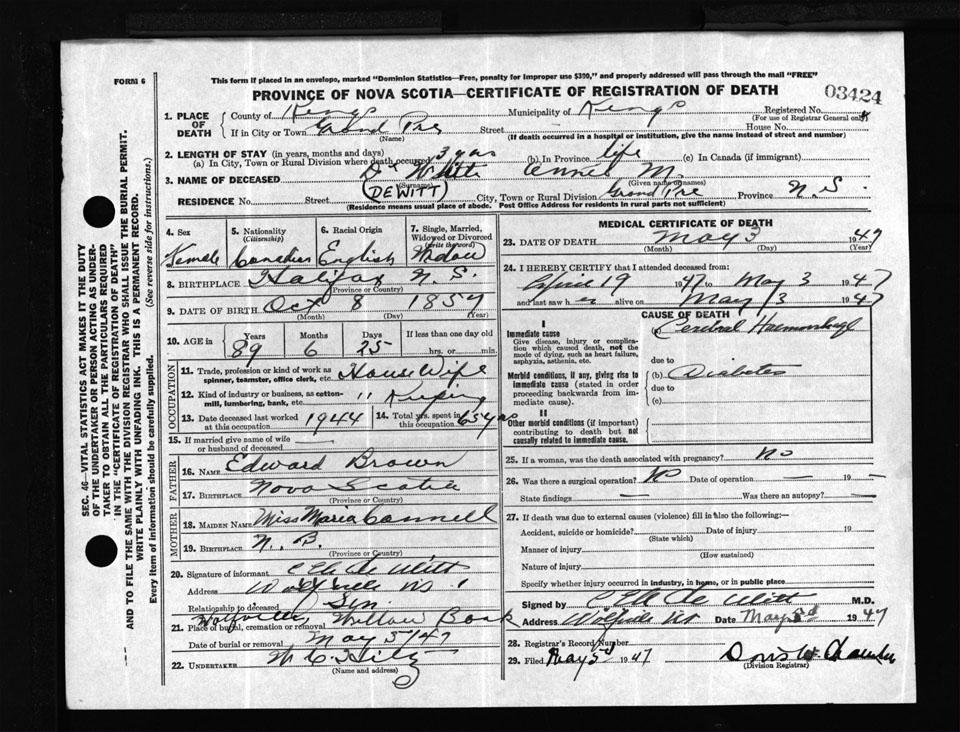 FORM 6
This form if placed in an envelope, marked "Dominion Statistics—Free, penalty for improper use $300," and properly addressed will pass through the mail "FREE"
PROVINCE OF NOVA SCOTIA—CERTIFICATE OF REGISTRATION OF DEATH
03424
1. PLACE OF DEATH County of Kings Municipality of Kings Registered No.
(For use of Registrar General only)
If in City or Town Grand Pre Street House No.
(Name) (If death occurred in a hospital or institution, give the name instead of street and number)
2. LENGTH OF STAY (in years, months and days)
(a) In City, Town or Rural Division where death occurred 3 yrs (b) In Province life (c) In Canada (if immigrant)
3. NAME OF DECEASED De Witt M.
(Surname) (Given name or names)
(DEWITT)
RESIDENCE No. Street City, Town or Rural Division Grand Pre Province N.S.
(Residence means usual place of abode. Post Office Address for residents in rural parts not sufficient)
4. Sex Female
5. Nationality (Citizenship) Canadian
6. Racial Origin English
7. Single, Married, Widowed or Divorced (write the word) Widow
8. BIRTHPLACE Halifax N.S.
(Province or Country)
9. DATE OF BIRTH Oct 8 1857
(Month) (Day) (Year)
10. AGE in Years 89 Months 6 Days 25 If less than one day old hrs. or min.
OCCUPATION
11. Trade, profession or kind of work as spinner, teamster, office clerk, etc. House Wife
12. Kind of industry or business, as cotton-mill, lumbering, bank, etc. " Keeping
13. Date deceased last worked at this occupation 1944
14. Total yrs. spent in this occupation 65 yrs
15. If married give name of wife or husband of deceased —
FATHER
16. NAME Edward Brown
17. BIRTHPLACE Nova Scotia
(Province or Country)
MOTHER
18. MAIDEN NAME Miss Maria Connell
19. BIRTHPLACE N. B.
(Province or Country)
20. Signature of informant De Witt
Address Wolfville NS
Relationship to deceased Son
21. Place of burial, cremation or removal Wolfville, Willow Bank
Date of burial or removal May 5/47
22. UNDERTAKER W C
(Name and address)
MEDICAL CERTIFICATE OF DEATH
23. DATE OF DEATH May 3 1947
(Month) (Day) (Year)
24. I HEREBY CERTIFY that I attended deceased from:
April 19 1947 to May 3 1947
and last saw h er alive on May 3 1947
CAUSE OF DEATH
I
Immediate cause
Give disease, injury or complication which caused death, not the mode of dying, such as heart failure, asphyxia, asthenia, etc.
(a) Cerebral Haemorrhage
due to
Morbid conditions, if any, giving rise to immediate cause (stated in order proceeding backwards from immediate cause).
(b) Diabetes
due to
(c)
II
Other morbid conditions (if important) contributing to death but not causally related to immediate cause.
25. If a woman, was the death associated with pregnancy? No
26. Was there a surgical operation? No Date of operation — 19 —
State findings — Was there an autopsy? —
27. If death was due to external causes (violence) fill in also the following:—
Accident, suicide or homicide? Date of injury 19
(State which)
Manner of injury
(How sustained)
Nature of injury
Specify whether injury occurred in industry, in home, or in public place
Signed by De Witt M.D.
Address Wolfville NS Date May 3d 1947
28. Registrar's Record Number
29. Filed May 5d 1947 Doris W.
(Division Registrar)
SEC. 46—VITAL STATISTICS ACT MAKES IT THE DUTY
OF THE UNDERTAKER OR PERSON ACTING AS UNDER-
TAKER TO OBTAIN ALL THE PARTICULARS REQUIRED
IN THE "CERTIFICATE OF REGISTRATION OF DEATH"
AND TO FILE THE SAME WITH THE DIVISION REGISTRAR WHO SHALL ISSUE THE BURIAL PERMIT.
WRITE PLAINLY WITH UNFADING INK. THIS IS A PERMANENT RECORD.
Every item of information should be carefully supplied. (See reverse side for instructions.)